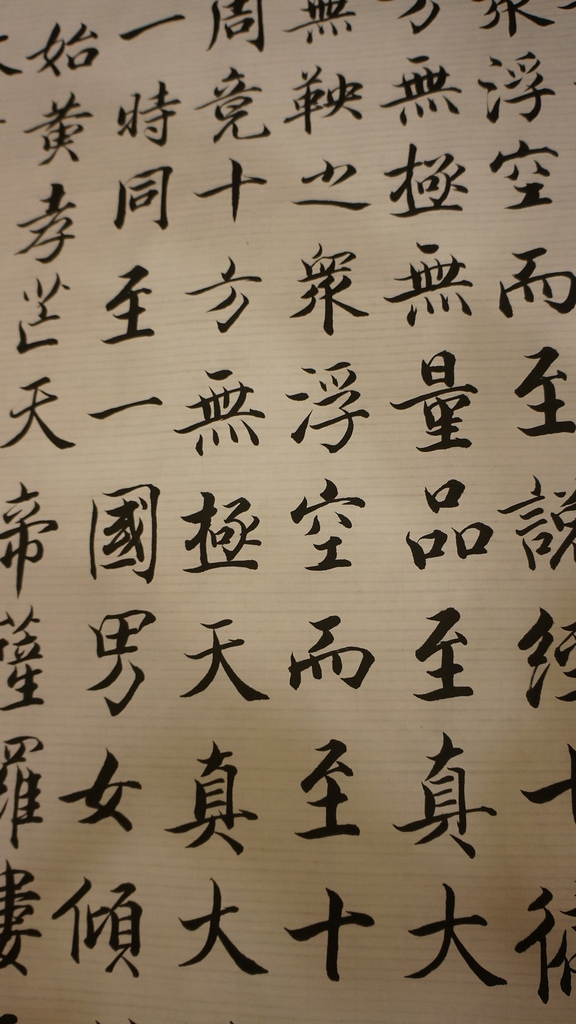 衆浮空而至說經十徧
方無極無量品至真大
無鞅之衆浮空而至十
周竟十方無極天真大
一時同至一國男女傾
始黃孝芒天帝薩羅婁